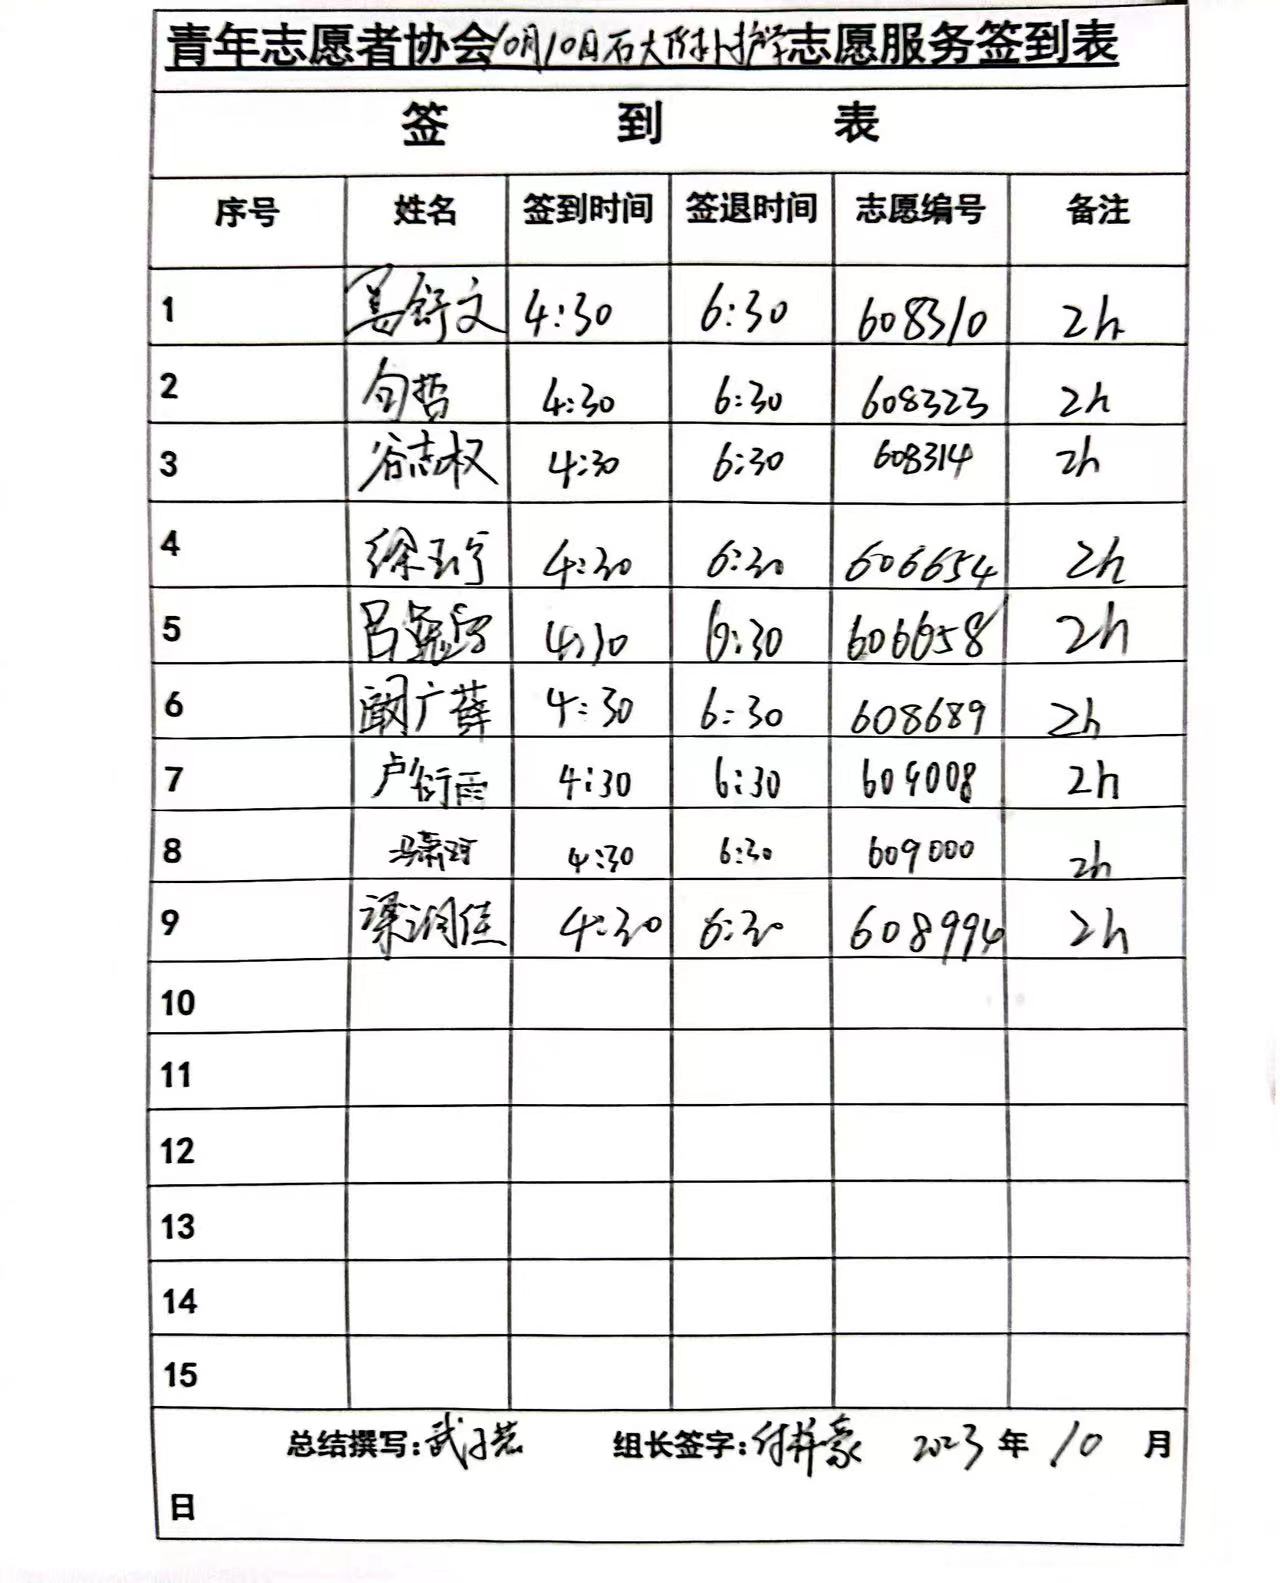 青年志愿者协会10月10日石大附小护学志愿服务签到表
签 到 表
序号 姓名 签到时间 签退时间 志愿编号 备注
1 姜舒文 4:30 6:30 608310 2h
2 句哲 4:30 6:30 608323 2h
3 谷志权 4:30 6:30 608314 2h
4 徐 4:30 6:30 606654 2h
5 吕 4:30 6:30 606658 2h
6 阚广薛 4:30 6:30 608689 2h
7 卢衍雨 4:30 6:30 609008 2h
8 冯 4:30 6:30 609000 2h
9 梁润佳 4:30 6:30 608994 2h
10
11
12
13
14
15
总结撰写:武子若 组长签字:付梓豪 2023年 10 月
日